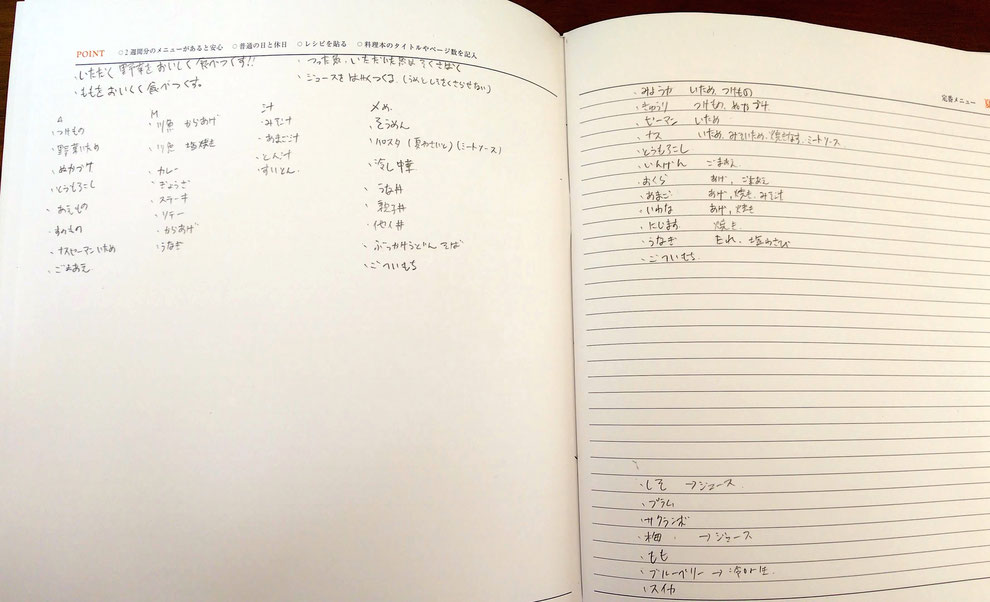 POINT ○2週間分のメニューがあると安心 ○普通の日と休日 ○レシピを貼る ○料理本のタイトルやページ数を記入
・いただく野菜をおいしく食べつくす!!
・ももをおいしく食べつくす。
・つった魚、いただいた魚はすぐさばく
・ジュースをはやくつくる (うめとしそをくさらせない)
・つけもの
・野菜いため
・ぬかづけ
・とうもろこし
・あえもの
・すのもの
・ナスピーマンいため
・ごまあえ
M
・川魚 からあげ
・川魚 塩焼き
・カレー
・ぎょうざ
・ステーキ
・ソテー
・からあげ
・うなぎ
汁
・みそ汁
・あまご汁
・とん汁
・すいとん
メめ.
・そうめん
・パスタ (夏やさいと) (ミートソース)
・冷し中華
・うな丼
・親子丼
・他人丼
・ぶっかけうどん そば
・ごへいもち
定番メニュー
・みょうが いため、つけもの
・きゅうり つけもの、ぬかづけ
・ピーマン いため
・ナス いため、みそいため、焼きなす、ミートソース
・とうもろこし
・いんげん ごまあえ
・おくら あげ、ごまあえ
・あまご あげ、焼き、みそ汁
・いわな あげ、焼き
・にじます 焼き
・うなぎ たれ、塩わさび
・ごへいもち
・しそ →ジュース
・プラム
・サクランボ
・梅 →ジュース
・もも
・ブルーベリー →冷や生
・スイカ